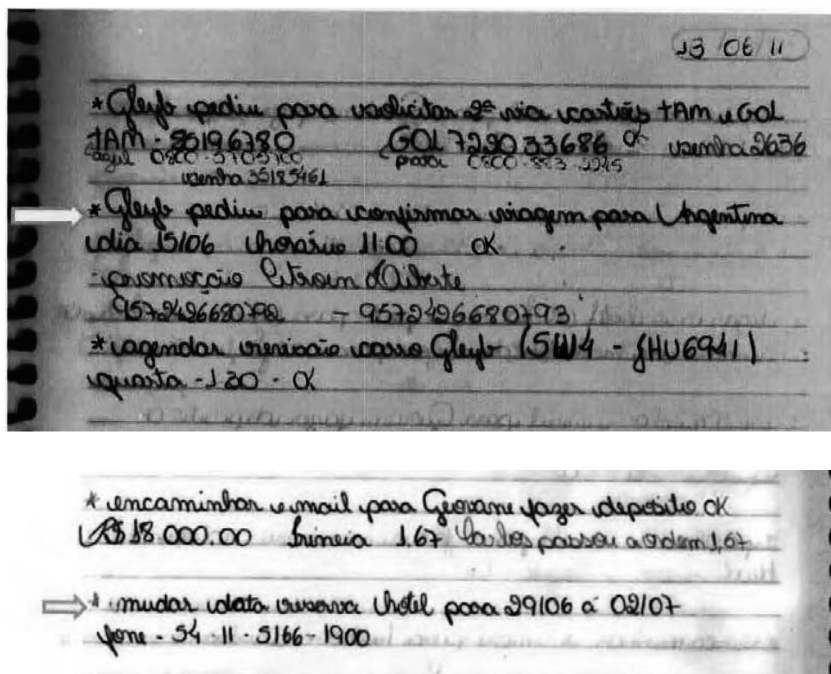 13/06/11
* Gleyb pediu para solicitar 2ª via cartões TAM e GOL
TAM - 80196780 GOL 729033686 OK senha 2636
0800-5705700 para 0800-883-2245
senha 35185461
* Gleyb pediu para confirmar viagem para Argentina
dia 15/06 horário 11:00 OK
- promoção Citroen
- 9572426680793
* agendar revisão carro Gleyb (SW4 - JHU6941)
quarta - 1 30 - OK
* encaminhar email para Geovane fazer deposito OK
R$ 18.000.00 1.67 Carlos passou a ordem 1,67
* mudar data reserva hotel para 29/06 a 02/07
fone - 54-11-5166-1900